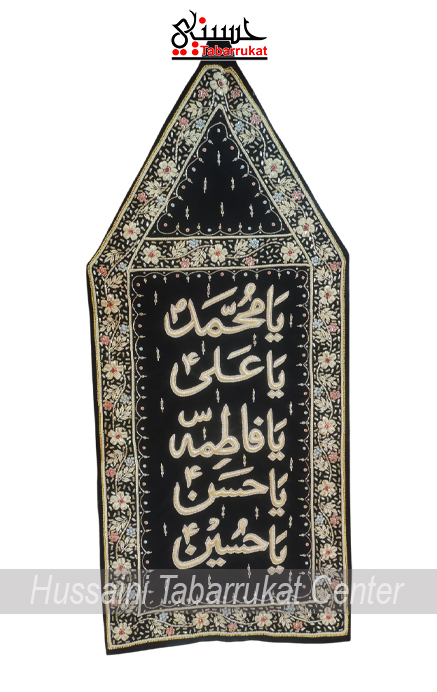 حسینی
Tabarrukat
یا محمد ص
یا علی ؑ
یا فاطمہ س
یا حسن ؑ
یا حسین ؑ
Hussaini Tabarrukat Center